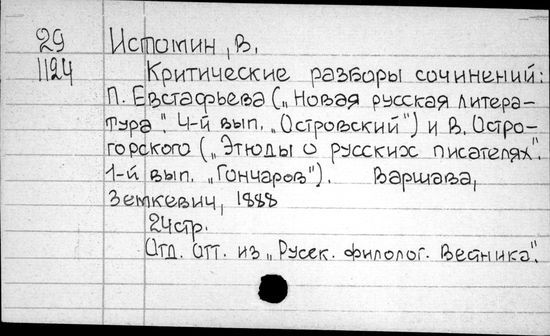 29 Истомин, В.
1124 Критические разборы сочинений:
П. Евстафьева („Новая русская литера-
тура". 4-й вып. „Островский") и В. Остро-
горского („Этюды о русских писателях".
1-й вып. „Гончаров"). Варшава,
Земкевич, 1888
24стр.
Отд. отт. из „Русск. филолог. Вестника".